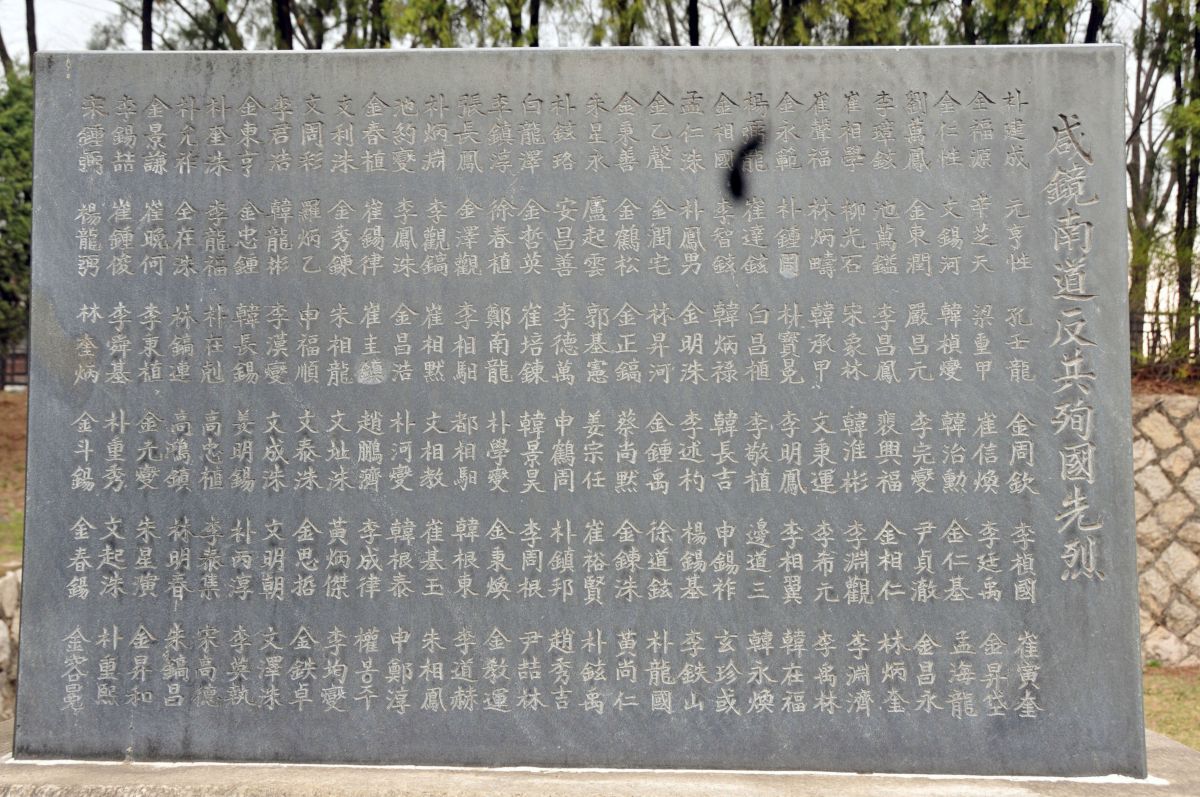 咸鏡南道反共殉國先烈
朴建成 元亨性 孔壬龍 金周欽 李楨國 崔寅奎
金福源 辛芝天 梁重甲 崔信煥 李廷禹 金昇岱
金仁性 文錫河 韓楨燮 韓治勳 金仁基 孟海龍
劉萬鳳 金東潤 嚴昌元 李元燮 尹貞澈 金昌永
李璋鉉 池萬鎰 李昌鳳 裵興福 金相仁 林炳奎
崔相學 柳光石 宋象林 韓淮彬 李淵觀 李淵濟
崔聲福 林炳疇 韓承甲 文秉運 李希元 李禹林
金永範 朴鍾國 朴寶晃 李明鳳 李相翼 韓在福
崔達鉉 白昌植 李敬植 邊道三 韓永煥
金相國 李智鉉 韓炳祿 韓長吉 申錫祚 玄珍或
孟仁洙 朴鳳男 金明洙 李述杓 楊錫基 李鉄山
金乙聲 金潤宅 林昇河 金鍾禹 徐道鉉 朴龍國
金秉善 金鶴松 金正鎬 蔡尚默 金鍊洙 黃尚仁
朱星永 盧起雲 郭基憲 姜宗任 崔裕賢 朴鉉禹
朴鉉珞 安昌善 李德萬 申鶴周 朴鎭邦 趙秀吉
白龍澤 金哲英 崔培鍊 韓景昊 李周根 尹喆林
李鎭淳 徐春植 鄭南龍 朴學燮 金秉煥 金敎運
張長鳳 金澤觀 李相馹 都相馹 韓根東 李道赫
朴炳淵 李觀鎬 崔相默 文相敎 崔基玉 朱相鳳
池約燮 李鳳洙 金昌浩 朴河燮 韓根泰 申鄭淳
金春植 崔錫律 崔圭鎭 趙鵬濟 李成律
文利洙 金秀鍊 朱相龍 文址洙 黃炳傑 李均燮
文周彩 羅炳乙 申福順 文泰洙 金思哲 金鉄卓
李君浩 韓龍彬 李漢燮 文成洙 文明朝 文澤洙
金東亨 金忠鍾 韓長錫 姜明錫 朴丙淳 李英執
朴奎洙 李龍福 朴在剋 高忠植 李泰集 宋高德
朴允祚 全在洙 林鎬連 高鴻鎭 林明春 朱鎬昌
金景謙 崔晩何 李東植 金元燮 朱星濱 金昇和
李錫喆 崔鍾俊 李舜基 朴重秀 文起洙 朴重熙
宋鍾弼 楊龍弼 林奎炳 金斗錫 金春錫 金容晃